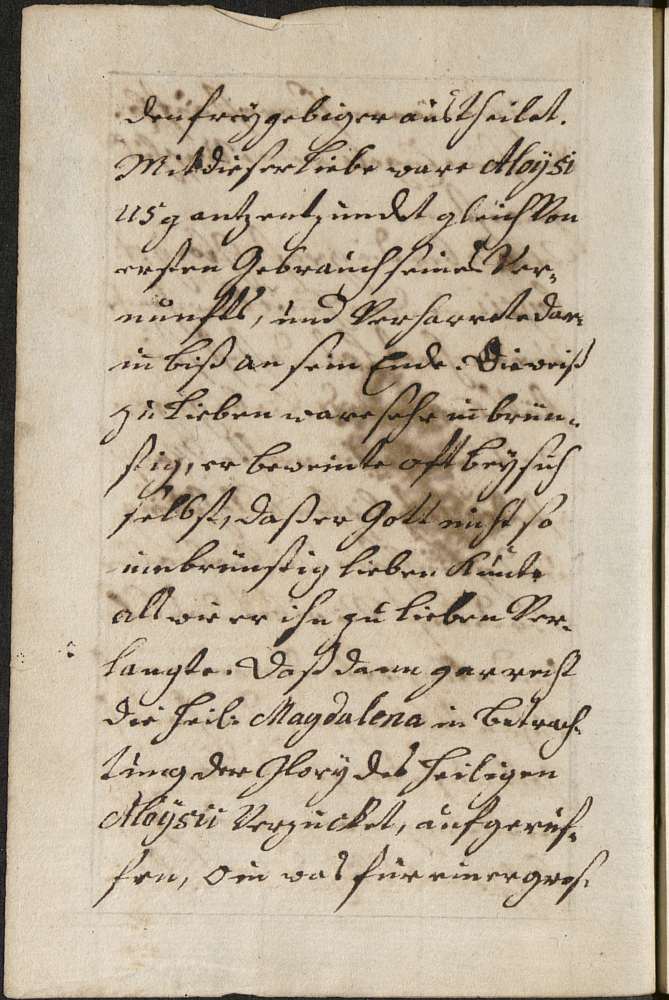 den freygebiger austheilet.
Mit dieser Liebe ware Aloÿsi
us gantz entzündet gleich Von
ersten Gebrauch seines Ver-
nunffts, und Verharrete dar-
in biß an sein Ende. Die weiß
zu Lieben ware sehr inbrün-
stig, er beweinte oft bey sich
selbst, daß er Gott nicht so
innbrünstig lieben Kunte
als wie er ihn zu lieben Ver-
langte. Daß dann gar recht
die heil: Magdalena in Betrach-
tung der Glory des heiligen
Aloÿsii Verzucket, aufgeruf-
fen, O in was für einer gros-